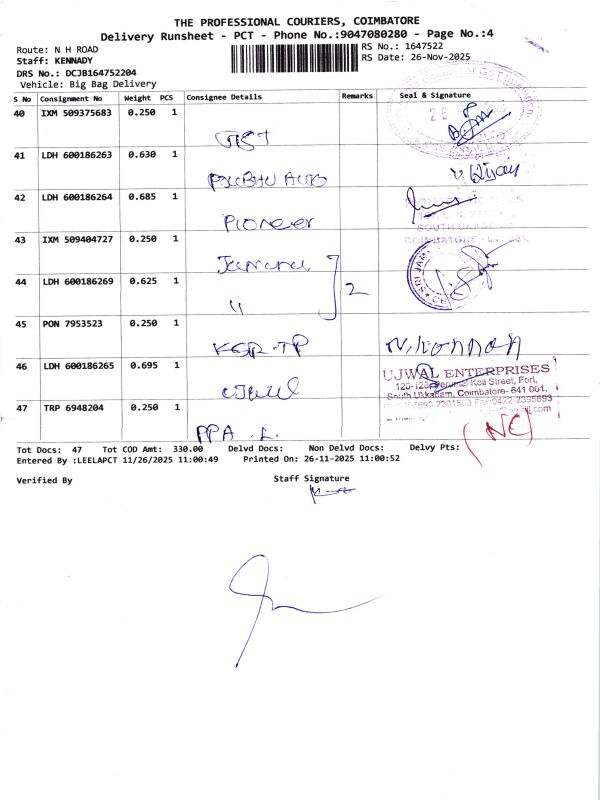 THE PROFESSIONAL COURIERS, COIMBATORE
Delivery Runsheet - PCT - Phone No.:9047080280 - Page No.:4
Route: N H ROAD
RS No.: 1647522
Staff: KENNADY
RS Date: 26-Nov-2025
DRS No.: DCJB164752204
Vehicle: Big Bag Delivery
S No Consignment No Weight PCS Consignee Details Remarks Seal & Signature
40 IXM 509375683 0.250 1
GST
41 LDH 600186263 0.630 1
PRABHU AUTO
V. Vijay
42 LDH 600186264 0.685 1
Pioneer
SOUTH UKKADAM
COIMBATORE
43 IXM 509404727 0.250 1
SRI
44 LDH 600186269 0.625 1
" 2
45 PON 7953523 0.250 1
KGR-TP
N. Kannan
46 LDH 600186265 0.695 1
UJWAL ENTERPRISES
120-123, Perumal Koil Street, Fort,
South Ukkadam, Coimbatore- 641 001.
47 TRP 6948204 0.250 1
PPA . L.
(NC)
Tot Docs: 47 Tot COD Amt: 330.00 Delvd Docs: Non Delvd Docs: Delvy Pts:
Entered By :LEELAPCT 11/26/2025 11:00:49 Printed On: 26-11-2025 11:00:52
Verified By
Staff Signature